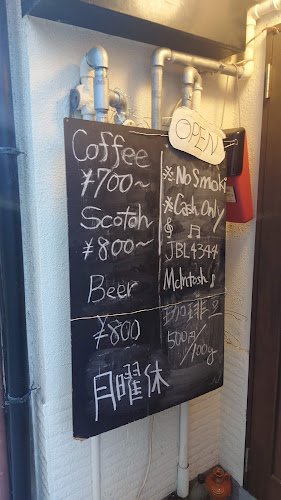 OPEN
Coffee
¥700~
Scotch
¥800~
Beer
¥800
月曜休
※No Smoki
※Cash Only
JBL4344
McIntosh
珈琲豆
500円/100g